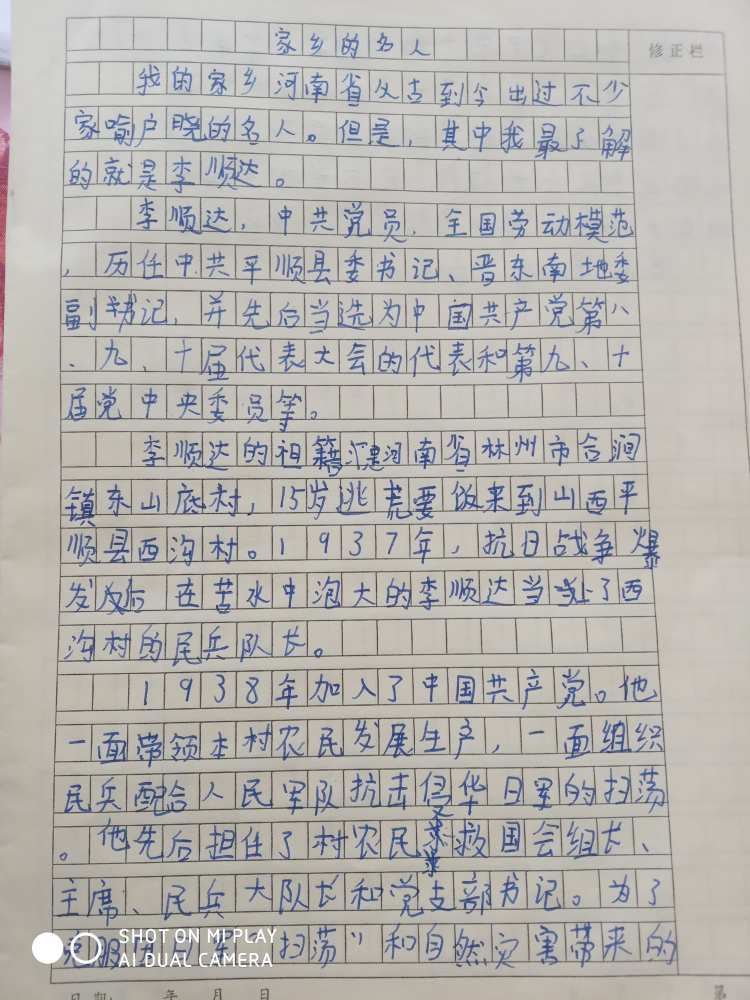 家乡的名人
修正栏
我的家乡河南省从古到今出过不少
家喻户晓的名人。但是，其中我最了解
的就是李顺达。
李顺达，中共党员，全国劳动模范
，历任中共平顺县委书记、晋东南地委
副书记，并先后当选为中国共产党第八
、九、十届代表大会的代表和第九、十
届党中央委员等。
李顺达的祖籍河南省林州市合涧
镇东山底村，15岁逃荒要饭来到山西平
顺县西沟村。1937年，抗日战争爆
发后在苦水中泡大的李顺达当上了西
沟村的民兵队长。
1938年加入了中国共产党。他
一面带领本村农民发展生产，一面组织
民兵配合人民军队抗击侵华日军的扫荡
。他先后担任了村农民救国会组长、
主席、民兵大队长和党支部书记。为了
克服日军"扫荡"和自然灾害带来的
SHOT ON MI PLAY
AI DUAL CAMERA
年 月 日
第